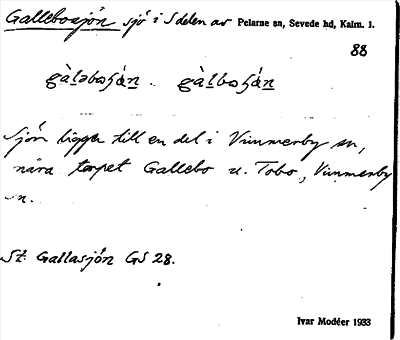 Gallebosjön sjö i S delen av Pelarne sn, Sevede hd, Kalm. l.
88
gàḻəboʂɧȧṉ . gàḻboʂɧȧṉ
Sjön ligger till en del i Vimmerby sn,
nära torpet Gallebo u. Tobo, Vimmerby
sn.
St. Gallasjön GS 28.
Ivar Modéer 1933